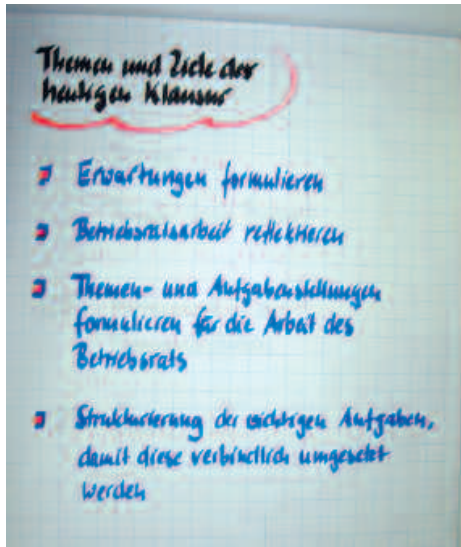 Themen und Ziele der
heutigen Klausur
Erwartungen formulieren
Betriebsratsarbeit reflektieren
Themen- und Aufgabenstellungen
formulieren für die Arbeit des
Betriebsrats
Strukturierung der wichtigen Aufgaben,
damit diese verbindlich umgesetzt
werden